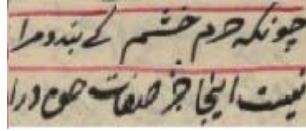 چونکه حرم خشم کے بندد مرا
نیست اینجا جز صفات حق درا